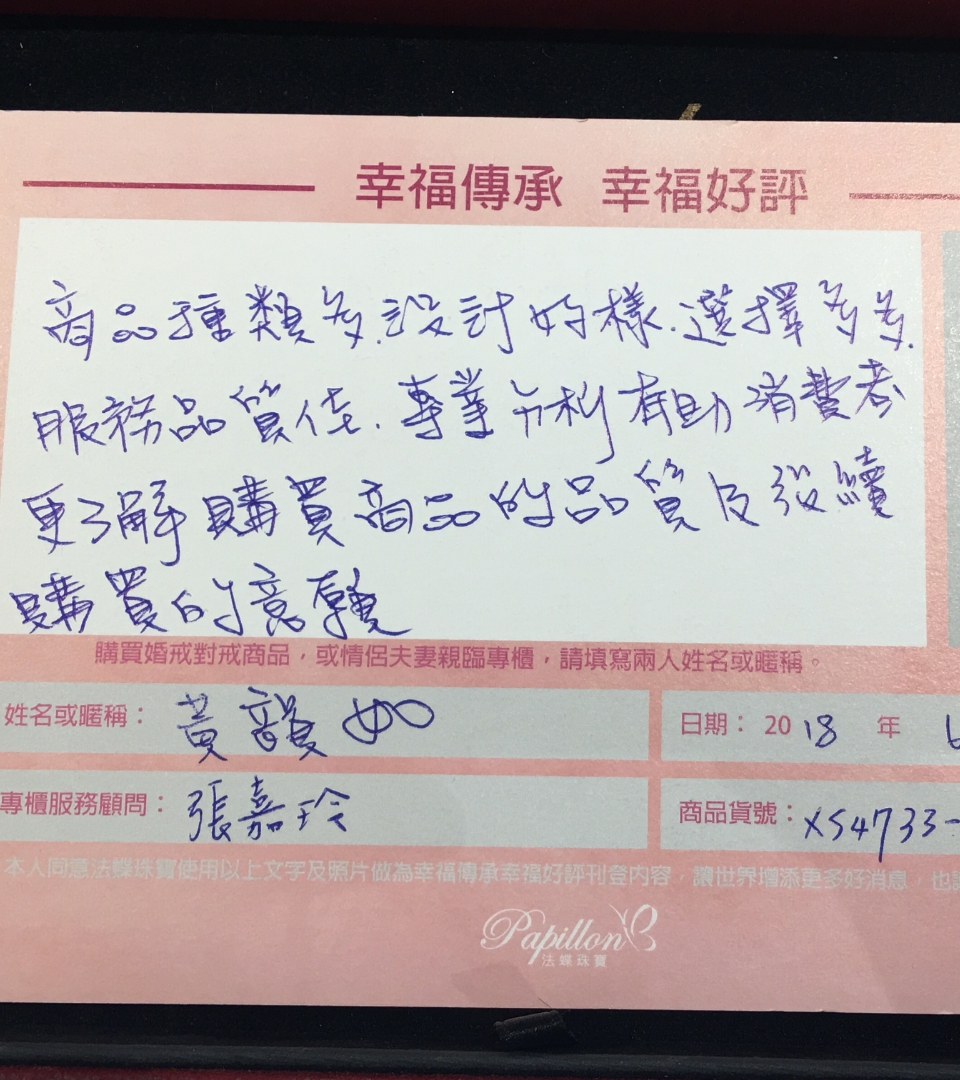 幸福傳承 幸福好評
商品種類多.設計好樣.選擇多多.
服務品質佳.專業分析有助消費者
更了解購買商品的品質及後續
購買的意願
購買婚戒對戒商品，或情侶夫妻親臨專櫃，請填寫兩人姓名或暱稱。
姓名或暱稱： 黃韻如 日期： 2018 年 6
專櫃服務顧問： 張嘉玲 商品貨號： XS4733-
本人同意法蝶珠寶使用以上文字及照片做為幸福傳承幸福好評刊登內容，讓世界增添更多好消息，也
Papillon
法蝶珠寶